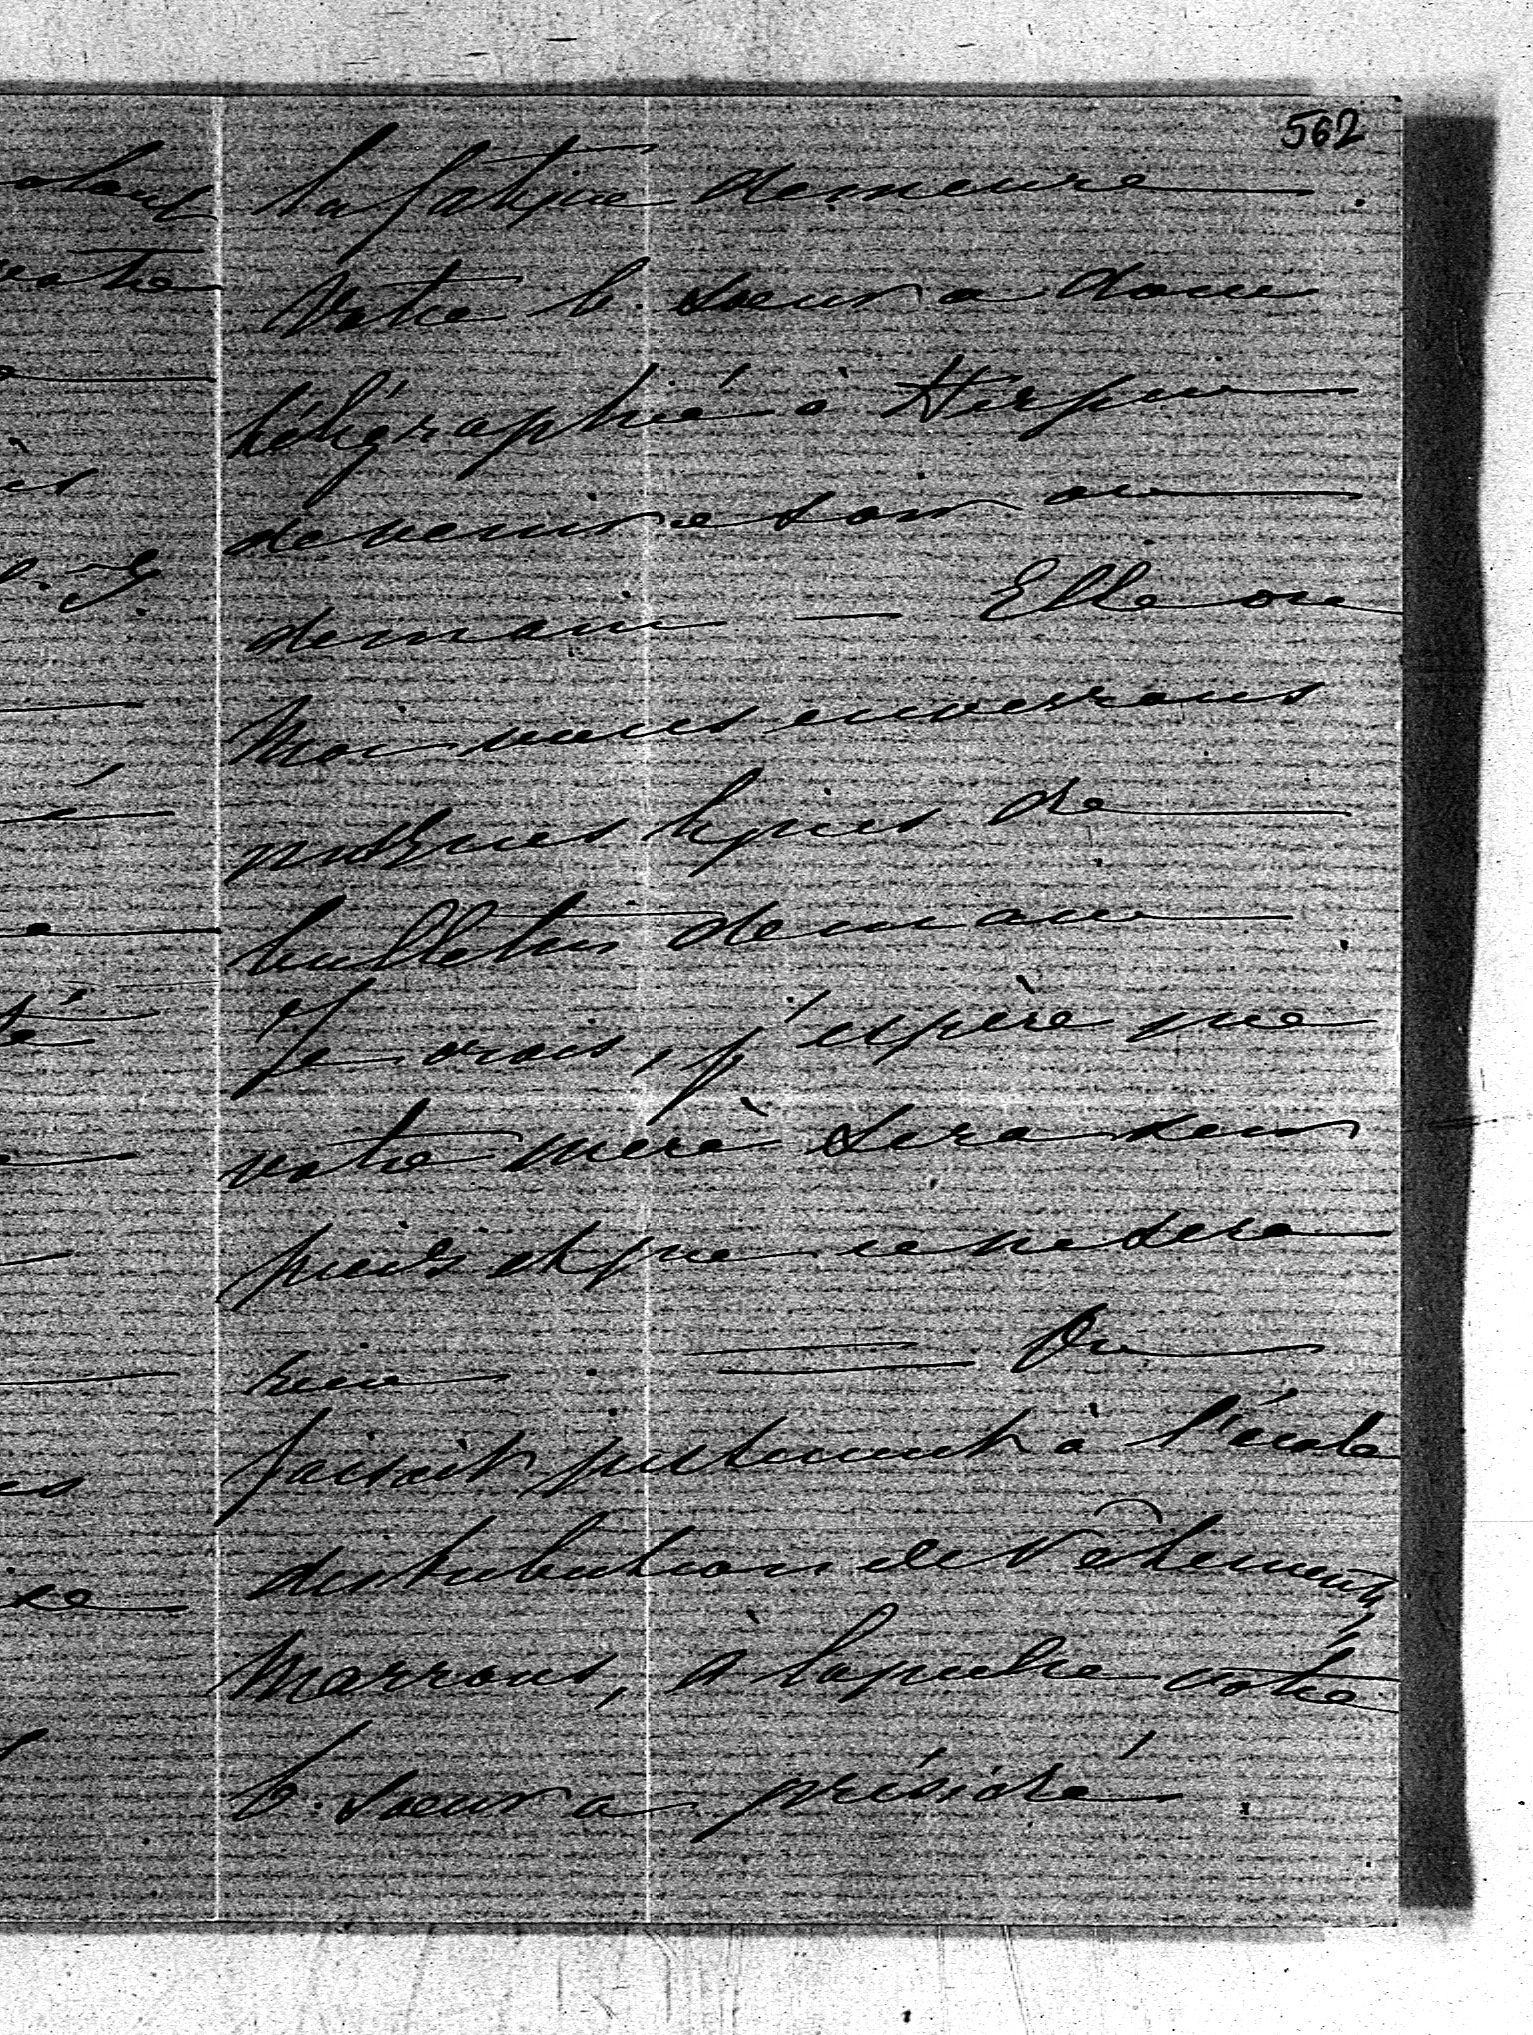 562
la fatigue demeure.
Votre b. soeur a donc
télégraphié à Herpin
de venir ce soir ou
demain — Elle ou
Moi vous enverrons
quelques lignes de
bulletin demain
Je crois, j'espère que
votre mère sera sur
pieds et que ce ne sera
rien. — On
faisait justement à l'école
distribution de vêtements,
Marrons, à laquelle votre
b. soeur a présidé.